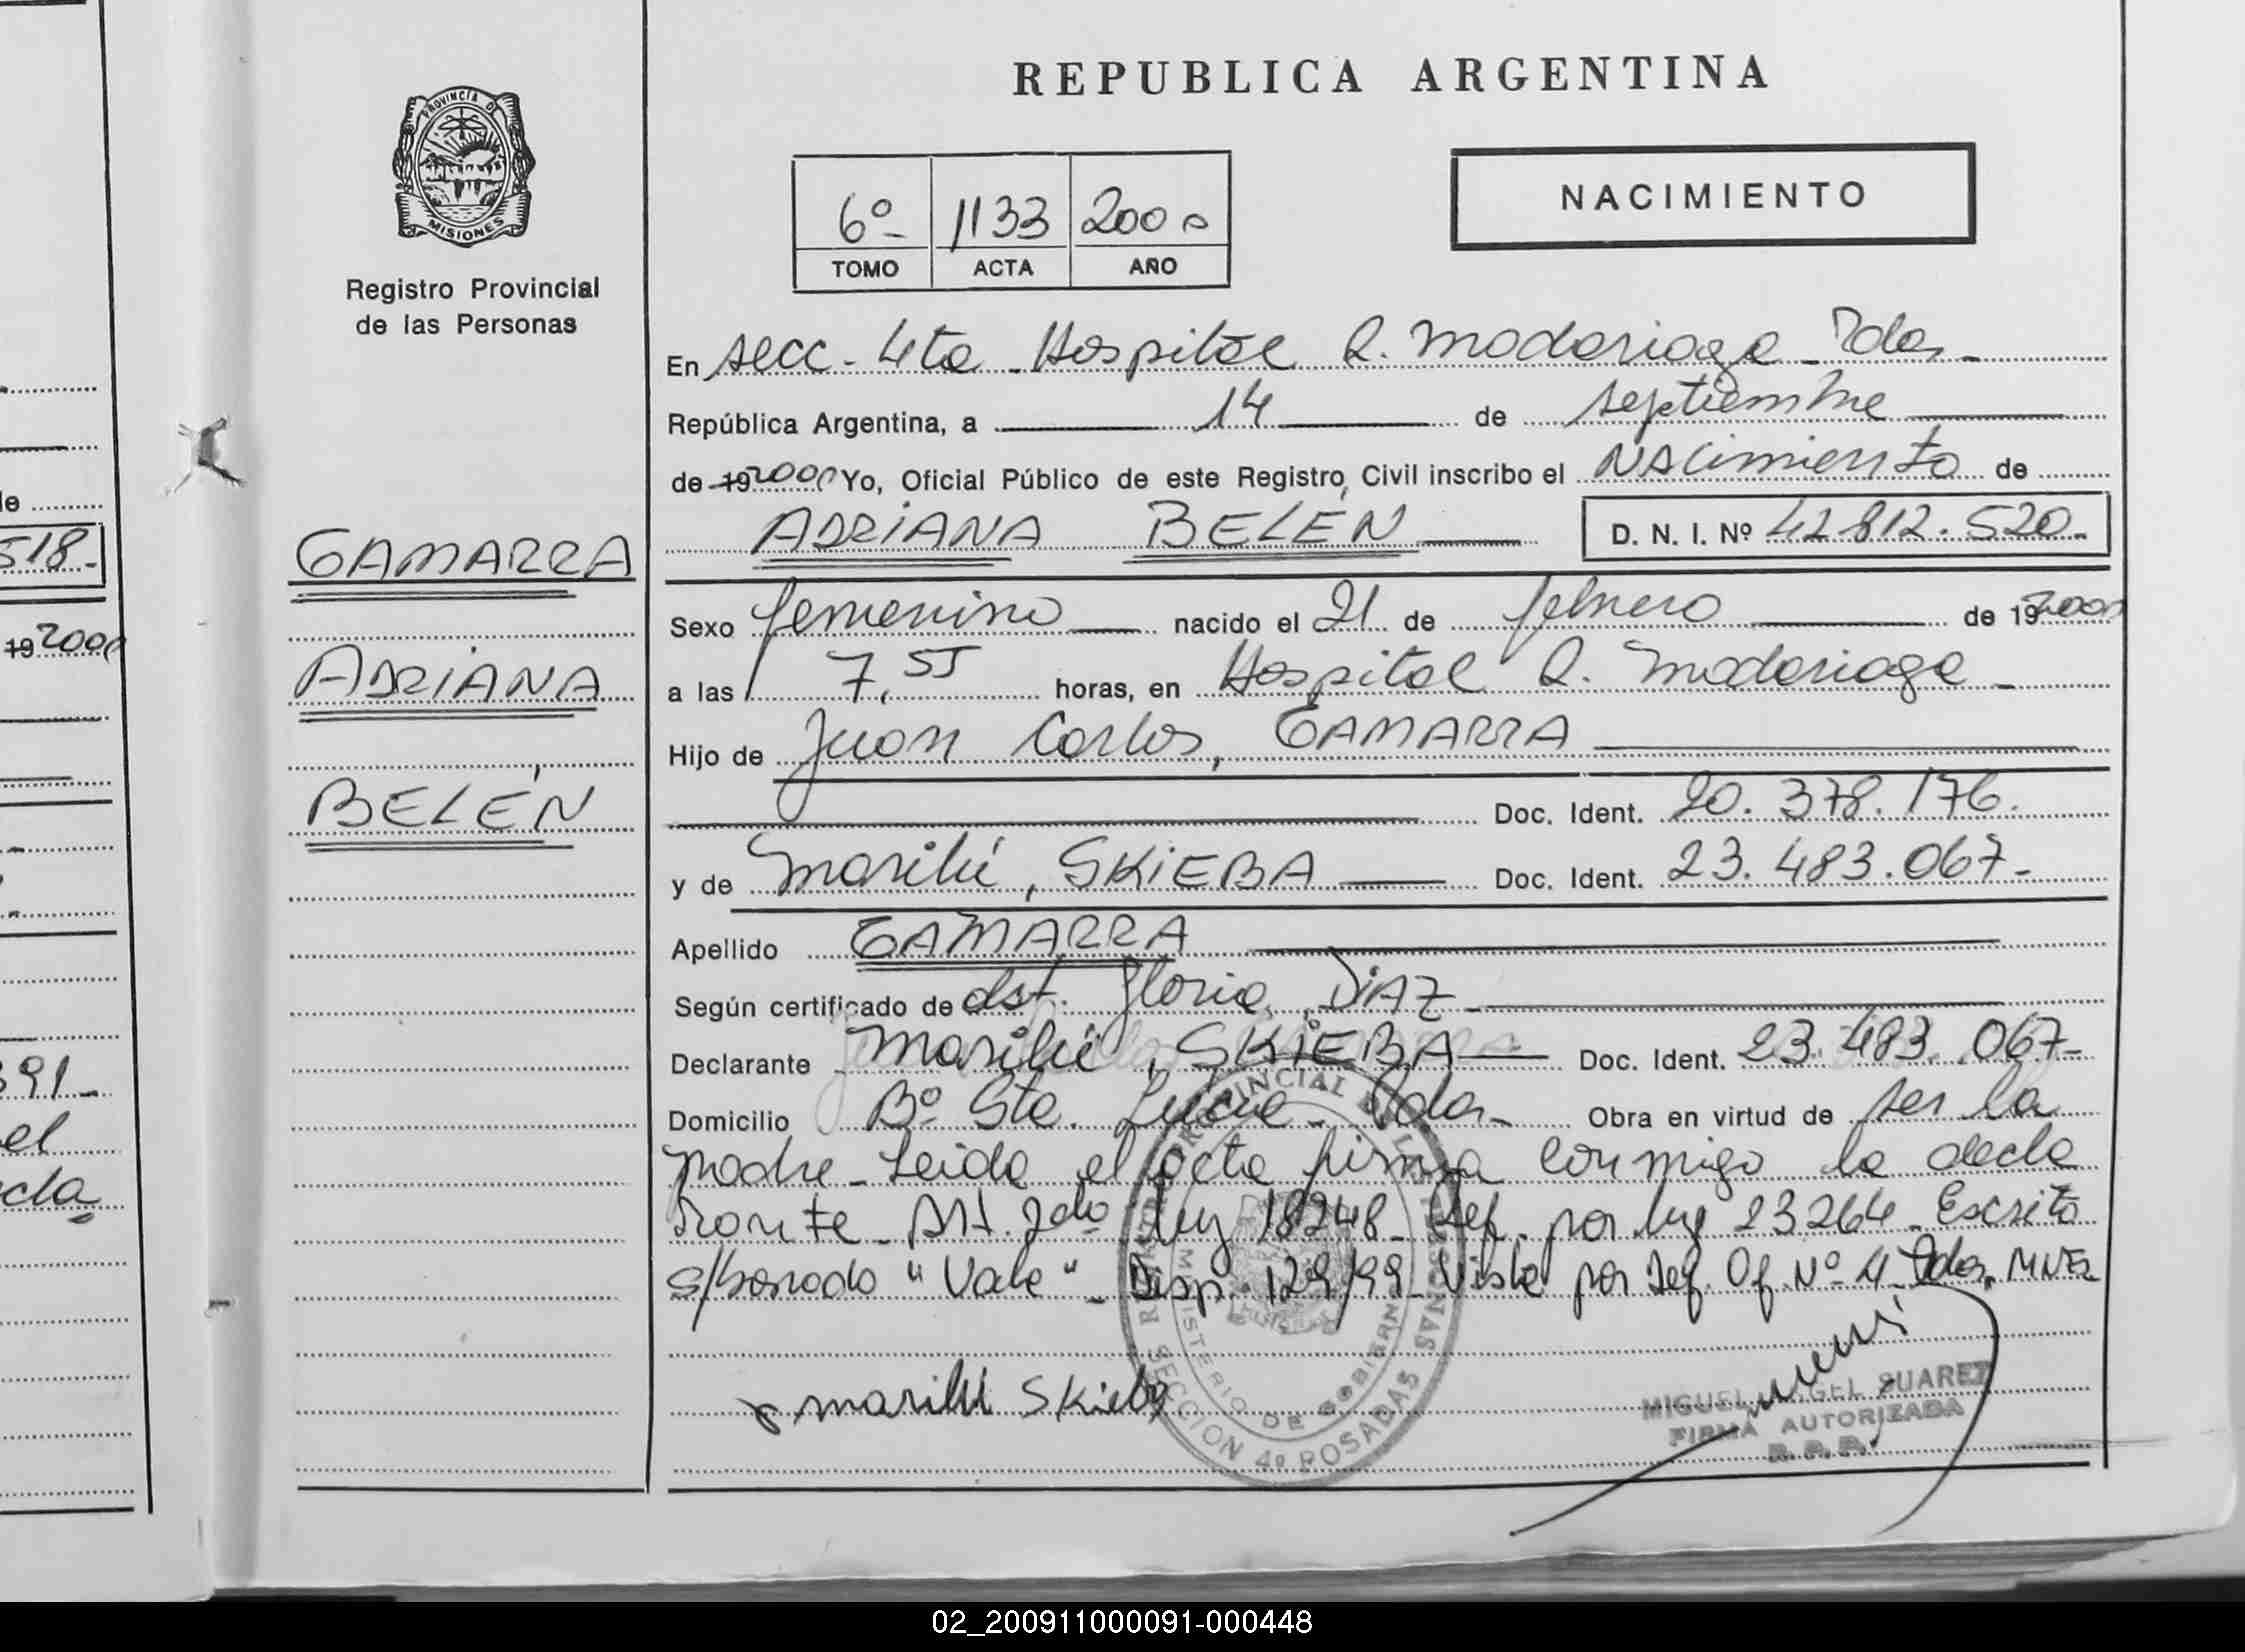 REPUBLICA ARGENTINA
PROVINCIA DE
MISIONES
Registro Provincial
de las Personas
NACIMIENTO
6º 1133 2000
TOMO ACTA AÑO
En secc - 4ta - Hospital R. Madariaga - Pdas -
República Argentina, a 14 de septiembre
de 19 2000 Yo, Oficial Público de este Registro Civil inscribo el NACimiento de
ADRIANA BELÉN D. N. I. Nº 42.812.520.-
GAMARRA
ADRIANA
BELÉN
Sexo femenino nacido el 21 de febrero de 19 2000
a las 7,55 horas, en Hospital R. Madariaga -
Hijo de Juan Carlos, GAMARRA
Doc. Ident. 20.378.176.
y de Marilú, SKIEBA Doc. Ident. 23.483.067-
Apellido GAMARRA
Según certificado de obst. Gloria, DIAZ -
Declarante Marilú, SKIEBA Doc. Ident. 23.483.067-
Domicilio Bº Sta. Lucia - Pdas - Obra en virtud de ser la
madre - Leida el acta firma conmigo la decla
rante - Art. 2do ley 18248 - Ref. por ley 23264 - Escrito
s/borrado "Vale" - Disp. 129/99 - Vista por Jef. Of. Nº 4 - Pdas, MNES
marilú Skieba
REGISTRO PROVINCIAL DE LAS PERSONAS
MINISTERIO DE GOBIERNO
SECCION 4º POSADAS
MIGUEL ANGEL SUAREZ
FIRMA AUTORIZADA
R. P. P.
518.-
19 2000
391-
el
cla
02_200911000091-000448